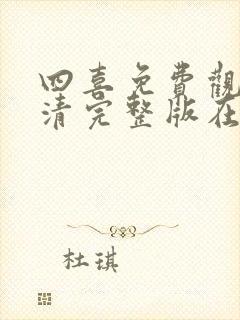 四喜免費觀
清完整版在
杜琪